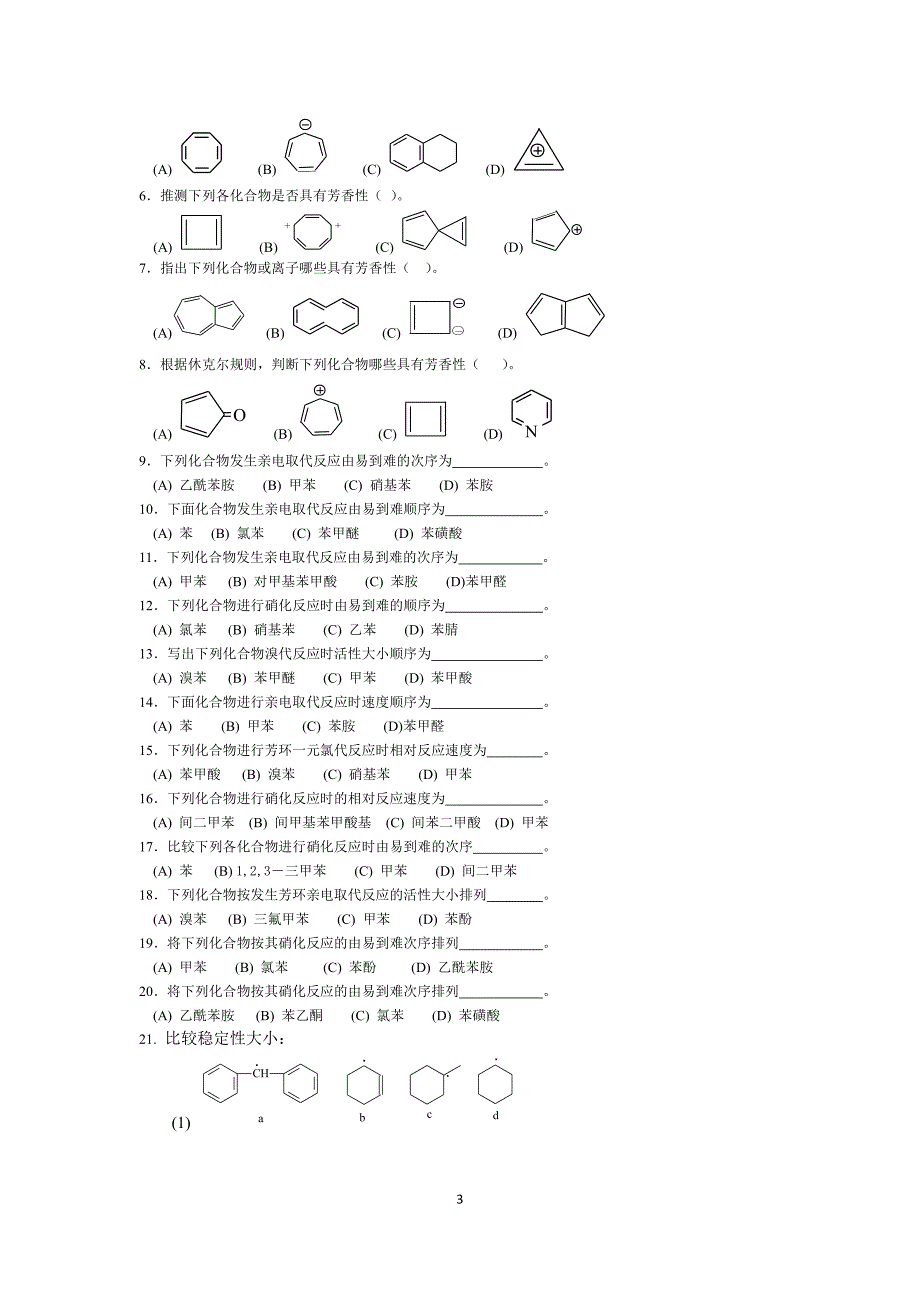 (A) (B) (C) (D)
6．推测下列各化合物是否具有芳香性（ ）。
(A) (B) + + (C) (D)
7．指出下列化合物或离子哪些具有芳香性（ ）。
(A) (B) (C) (D)
8．根据休克尔规则，判断下列化合物哪些具有芳香性（ ）。
(A) O (B) (C) (D) N
9．下列化合物发生亲电取代反应由易到难的次序为 。
(A) 乙酰苯胺 (B) 甲苯 (C) 硝基苯 (D) 苯胺
10．下面化合物发生亲电取代反应由易到难顺序为 。
(A) 苯 (B) 氯苯 (C) 苯甲醚 (D) 苯磺酸
11．下列化合物发生亲电取代反应由易到难的次序为 。
(A) 甲苯 (B) 对甲基苯甲酸 (C) 苯胺 (D)苯甲醛
12．下列化合物进行硝化反应时由易到难的顺序为 。
(A) 氯苯 (B) 硝基苯 (C) 乙苯 (D) 苯腈
13．写出下列化合物溴代反应时活性大小顺序为 。
(A) 溴苯 (B) 苯甲醚 (C) 甲苯 (D) 苯甲酸
14．下面化合物进行亲电取代反应时速度顺序为 。
(A) 苯 (B) 甲苯 (C) 苯胺 (D)苯甲醛
15．下列化合物进行芳环一元氯代反应时相对反应速度为 。
(A) 苯甲酸 (B) 溴苯 (C) 硝基苯 (D) 甲苯
16．下列化合物进行硝化反应时的相对反应速度为 。
(A) 间二甲苯 (B) 间甲基苯甲酸基 (C) 间苯二甲酸 (D) 甲苯
17．比较下列各化合物进行硝化反应时由易到难的次序 。
(A) 苯 (B) 1,2,3－三甲苯 (C) 甲苯 (D) 间二甲苯
18．下列化合物按发生芳环亲电取代反应的活性大小排列 。
(A) 溴苯 (B) 三氟甲苯 (C) 甲苯 (D) 苯酚
19．将下列化合物按其硝化反应的由易到难次序排列 。
(A) 甲苯 (B) 氯苯 (C) 苯酚 (D) 乙酰苯胺
20．将下列化合物按其硝化反应的由易到难次序排列 。
(A) 乙酰苯胺 (B) 苯乙酮 (C) 氯苯 (D) 苯磺酸
21. 比较稳定性大小：
CH
(1) a b c d
3